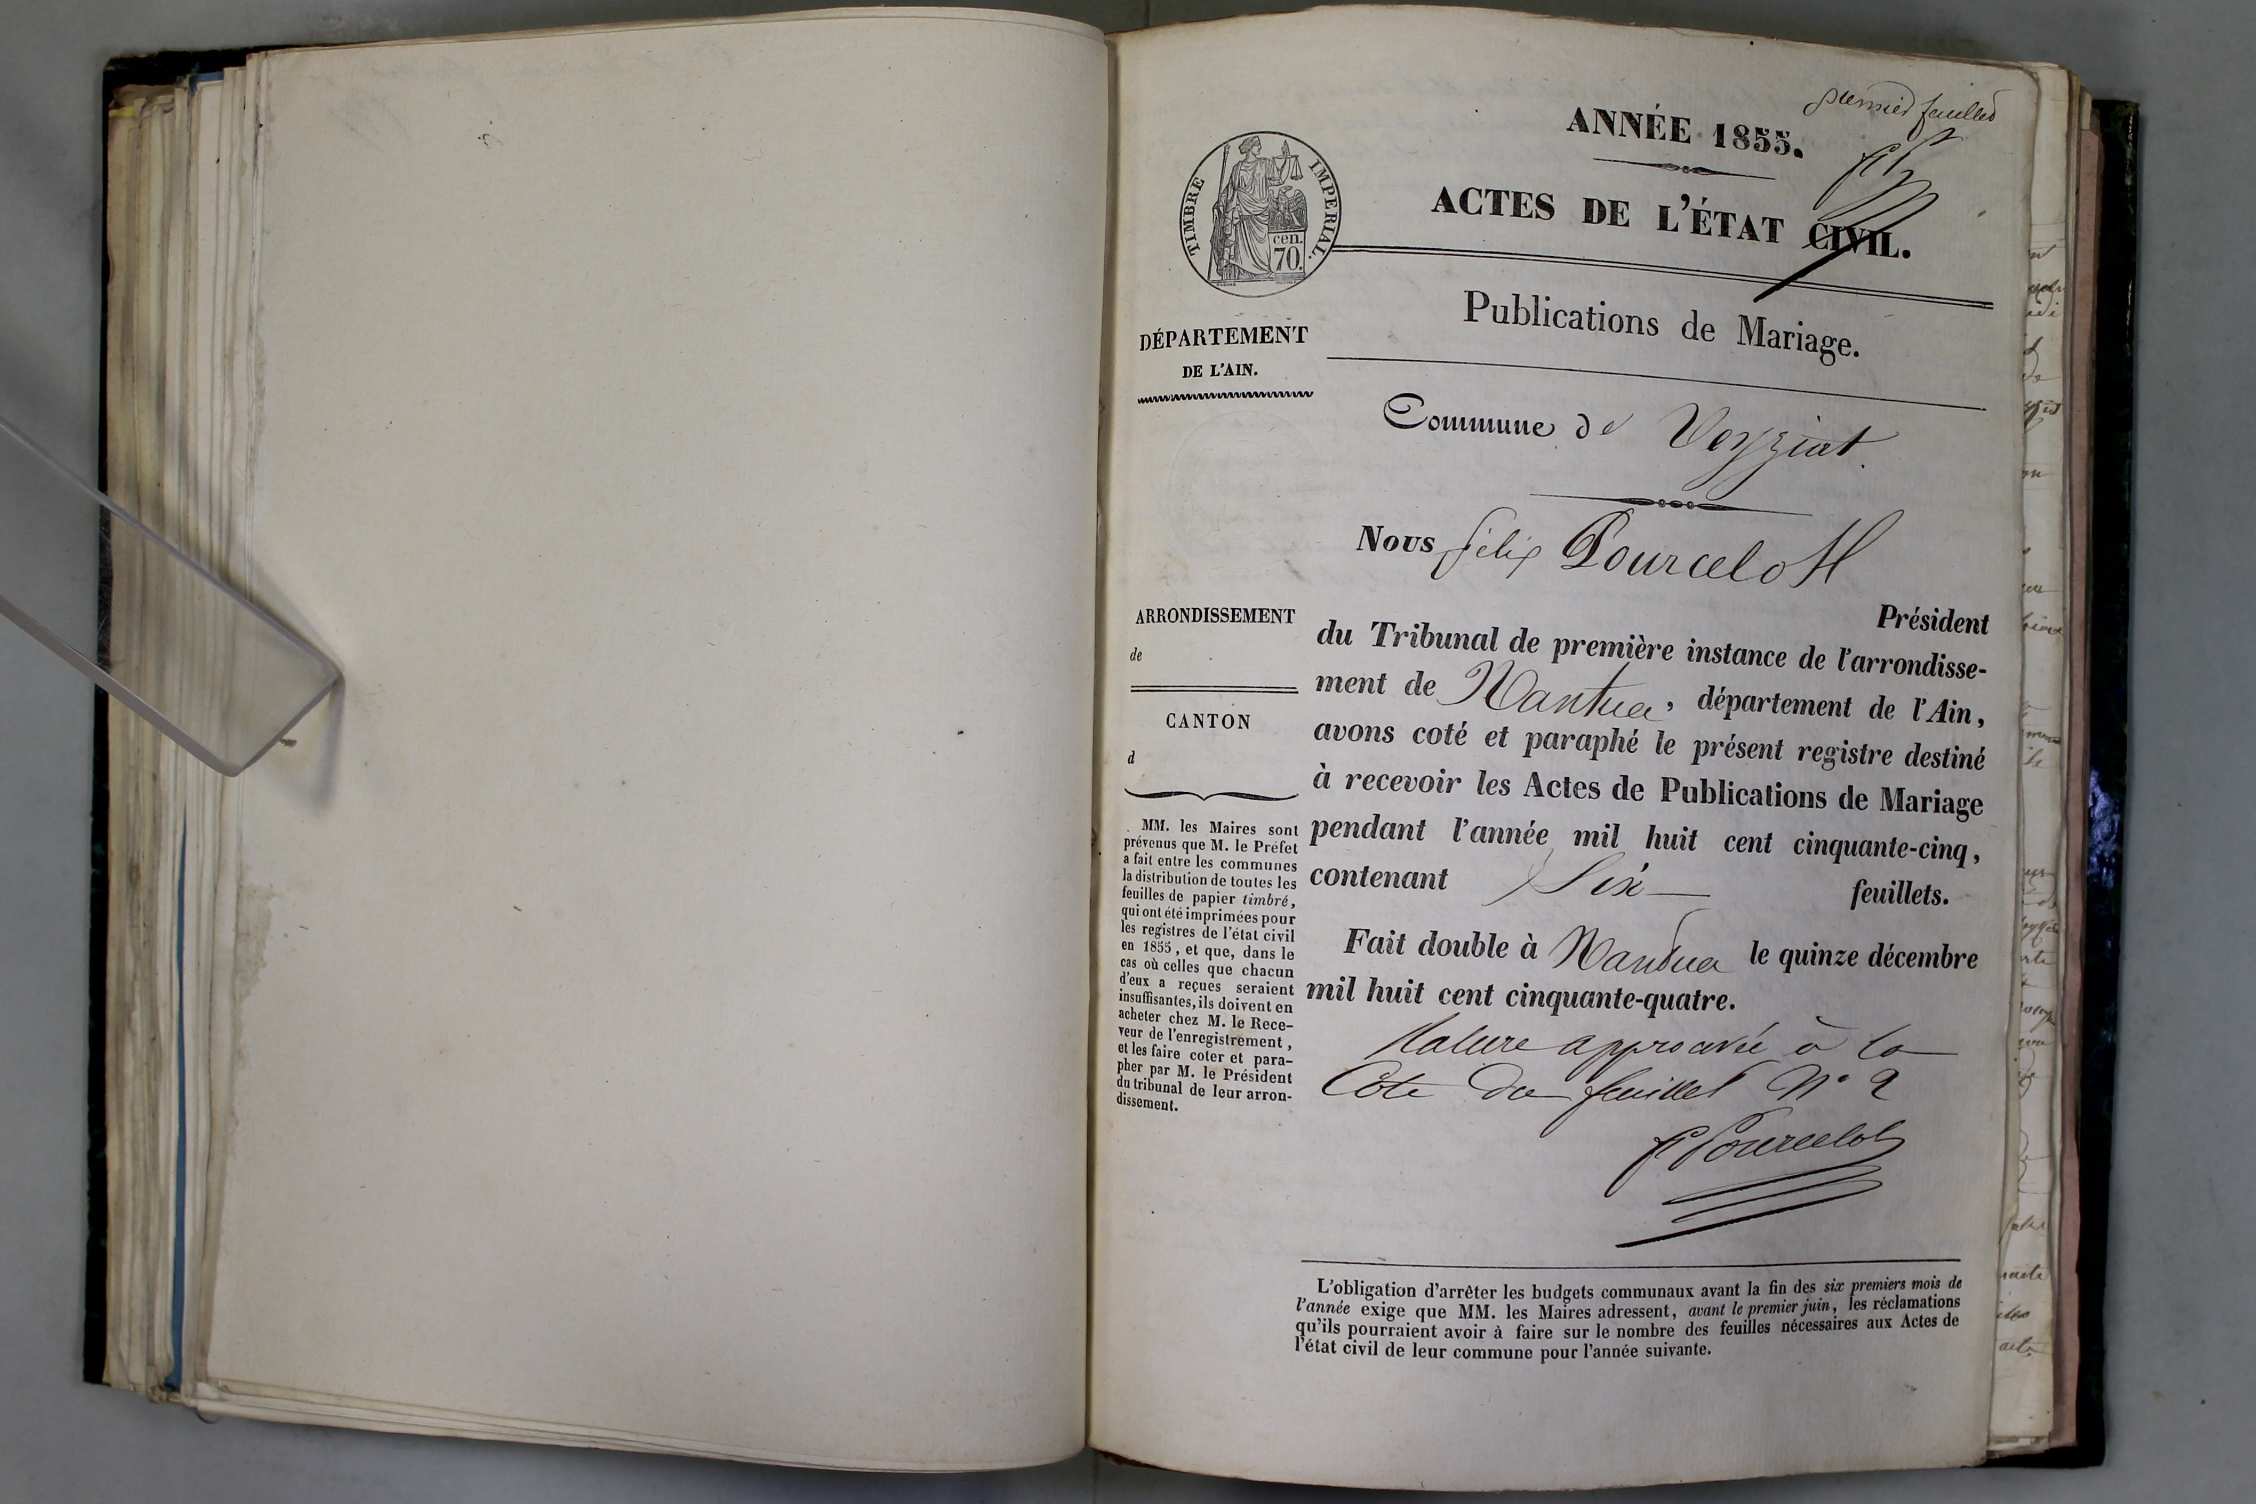 premier feuillet
ANNÉE 1855.
TIMBRE IMPERIAL.
cen.
70.
ACTES DE L'ÉTAT CIVIL.
Publications de Mariage.
DÉPARTEMENT
DE L'AIN.
Commune de Veyziat.
Nous félix Pourcelott
Président
du Tribunal de première instance de l'arrondisse-
ment de Nantua, département de l'Ain,
avons coté et paraphé le présent registre destiné
à recevoir les Actes de Publications de Mariage
pendant l'année mil huit cent cinquante-cinq,
contenant Six feuillets.
Fait double à Nantua le quinze décembre
mil huit cent cinquante-quatre.
Rature approuvée à la
Cote du feuillet N° 2
F Pourcelott
ARRONDISSEMENT
de
CANTON
d
MM. les Maires sont
prévenus que M. le Préfet
a fait entre les communes
la distribution de toutes les
feuilles de papier timbré,
qui ont été imprimées pour
les registres de l'état civil
en 1855, et que, dans le
cas où celles que chacun
d'eux a reçues seraient
insuffisantes, ils doivent en
acheter chez M. le Rece-
veur de l'enregistrement,
et les faire coter et para-
pher par M. le Président
du tribunal de leur arron-
dissement.
L'obligation d'arrêter les budgets communaux avant la fin des six premiers mois de
l'année exige que MM. les Maires adressent, avant le premier juin, les réclamations
qu'ils pourraient avoir à faire sur le nombre des feuilles nécessaires aux Actes de
l'état civil de leur commune pour l'année suivante.